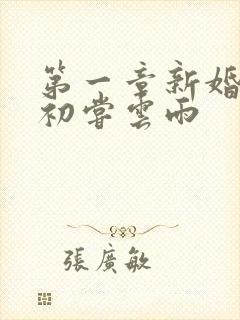 第一章新婚
初嘗雲雨
張廣敏